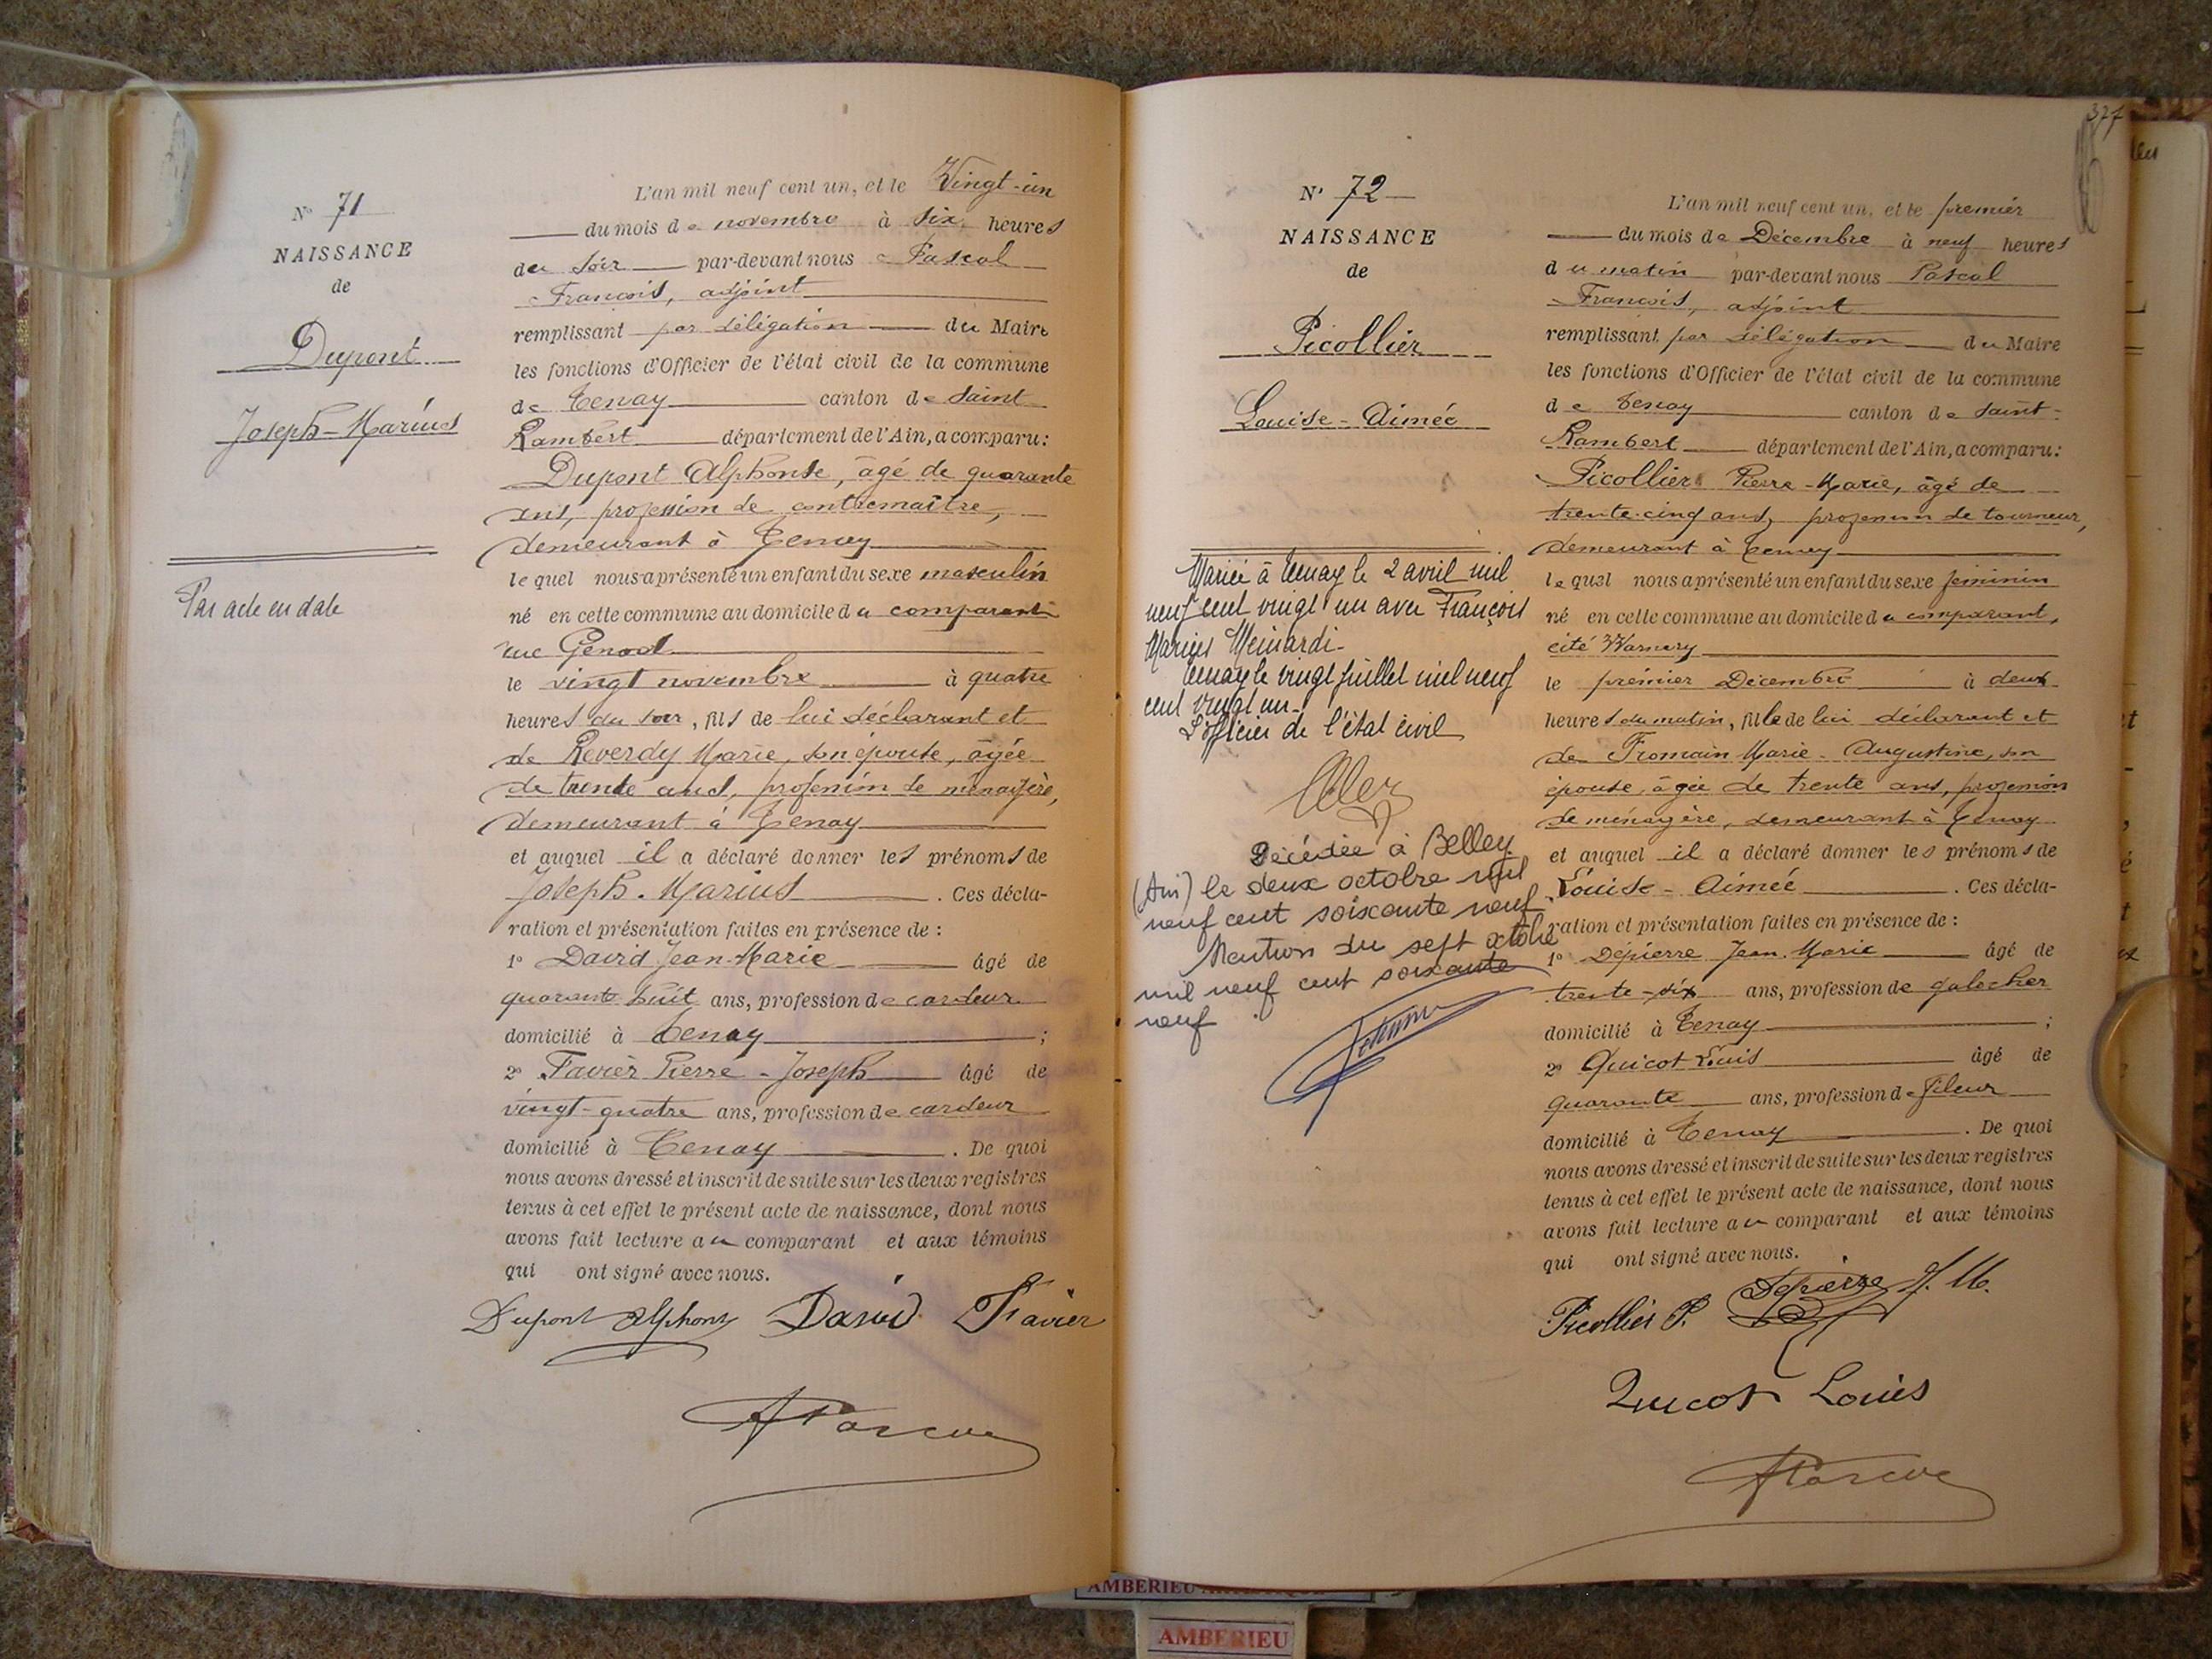 N° 71
NAISSANCE
de
Dupont
Joseph-Marius
Par acte en date
L'an mil neuf cent un, et le Vingt-un
du mois de novembre à six heures
du soir par-devant nous Pascal
François, adjoint
remplissant par délégation du Maire
les fonctions d'Officier de l'état civil de la commune
de Tenay canton de Saint
Rambert département de l'Ain, a comparu:
Dupont Alphonse, âgé de quarante
ans, profession de contremaître,
demeurant à Tenay
lequel nous a présenté un enfant du sexe masculin
né en cette commune au domicile du comparant
rue Génod
le vingt novembre à quatre
heures du soir, fils de lui déclarant et
de Reverdy Marie, son épouse, âgée
de trente ans, profession de ménagère,
demeurant à Tenay
et auquel il a déclaré donner les prénoms de
Joseph-Marius. Ces décla-
ration et présentation faites en présence de :
1° David Jean-Marie âgé de
quarante huit ans, profession de cardeur
domicilié à Tenay ;
2° Favier Pierre-Joseph âgé de
vingt-quatre ans, profession de cardeur
domicilié à Tenay. De quoi
nous avons dressé et inscrit de suite sur les deux registres
tenus à cet effet le présent acte de naissance, dont nous
avons fait lecture au comparant et aux témoins
qui ont signé avec nous.
Dupont Alphons David Favier
F Pascal
377
N° 72
NAISSANCE
de
Picollier
Louise-Aimée
Mariée à Tenay le 2 avril mil
neuf cent vingt un avec François
Marius Meinardi.
Tenay le vingt juillet mil neuf
cent vingt un.
L'officier de l'état civil
Décédée à Belley
(Ain) le deux octobre mil
neuf cent soixante neuf.
Mention du sept octobre
mil neuf cent soixante
neuf.
L'an mil neuf cent un, et le premier
du mois de Décembre à neuf heures
du matin par-devant nous Pascal
François, adjoint
remplissant par délégation du Maire
les fonctions d'Officier de l'état civil de la commune
de Tenay canton de Saint-
Rambert département de l'Ain, a comparu:
Picollier Pierre-Marie, âgé de
trente-cinq ans, profession de tourneur,
demeurant à Tenay
lequel nous a présenté un enfant du sexe féminin
né en cette commune au domicile du comparant,
cité Warnery
le premier Décembre à deux
heures du matin, fille de lui déclarant et
de Fromain Marie-Augustine, son
épouse, âgée de trente ans, profession
de ménagère, demeurant à Tenay
et auquel il a déclaré donner les prénoms de
Louise-Aimée. Ces décla-
ration et présentation faites en présence de :
1° Dépierre Jean-Marie âgé de
trente-six ans, profession de galocher
domicilié à Tenay ;
2° Quicot Louis âgé de
quarante ans, profession de fileur
domicilié à Tenay. De quoi
nous avons dressé et inscrit de suite sur les deux registres
tenus à cet effet le présent acte de naissance, dont nous
avons fait lecture au comparant et aux témoins
qui ont signé avec nous.
Picollier P. Depierre J. M.
Quicot Louis
F Pascal
AMBERIEU
AMBERIEU